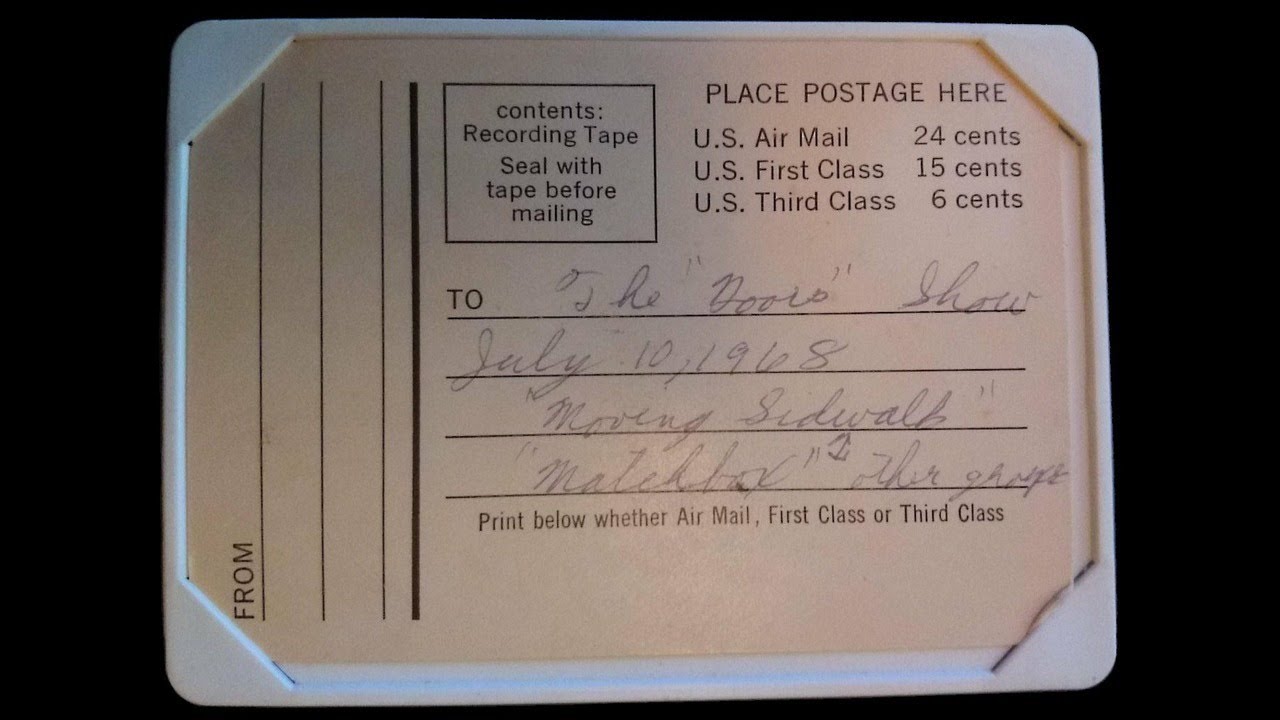 contents:
Recording Tape
Seal with
tape before
mailing
PLACE POSTAGE HERE
U.S. Air Mail 24 cents
U.S. First Class 15 cents
U.S. Third Class 6 cents
TO The "Doors" Show
July 10, 1968
"Moving Sidwalk"
"Matchbox" & other groups
Print below whether Air Mail, First Class or Third Class
FROM